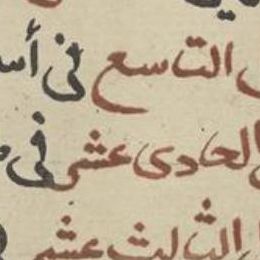 التاسع في أس
الحادى عشر في
الثالث عشر